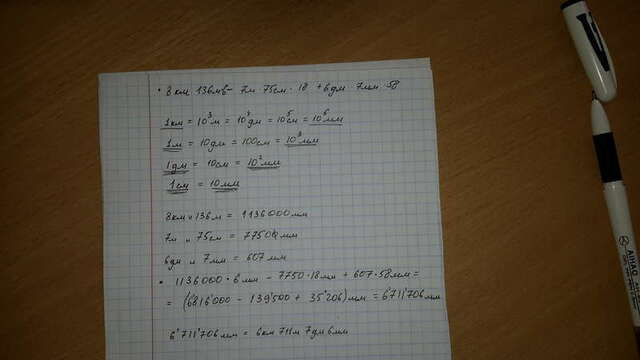 8 км 136мм – 7м 75см · 18 + 6дм 7мм · 58
1км = 10³м = 10⁴дм = 10⁵см = 10⁶мм
1м = 10дм = 100см = 10³мм
1дм = 10см = 10²мм
1см = 10мм
8км и 136м = 1136000мм
7м и 75см = 7750мм
6дм и 7мм = 607мм
1136000 · 6мм – 7750 · 18мм + 607 · 58мм =
= (6816'000 – 139'500 + 35'206)мм = 6'711'706мм
6'711'706мм = 6км 711м 7дм 6мм
AIHAO